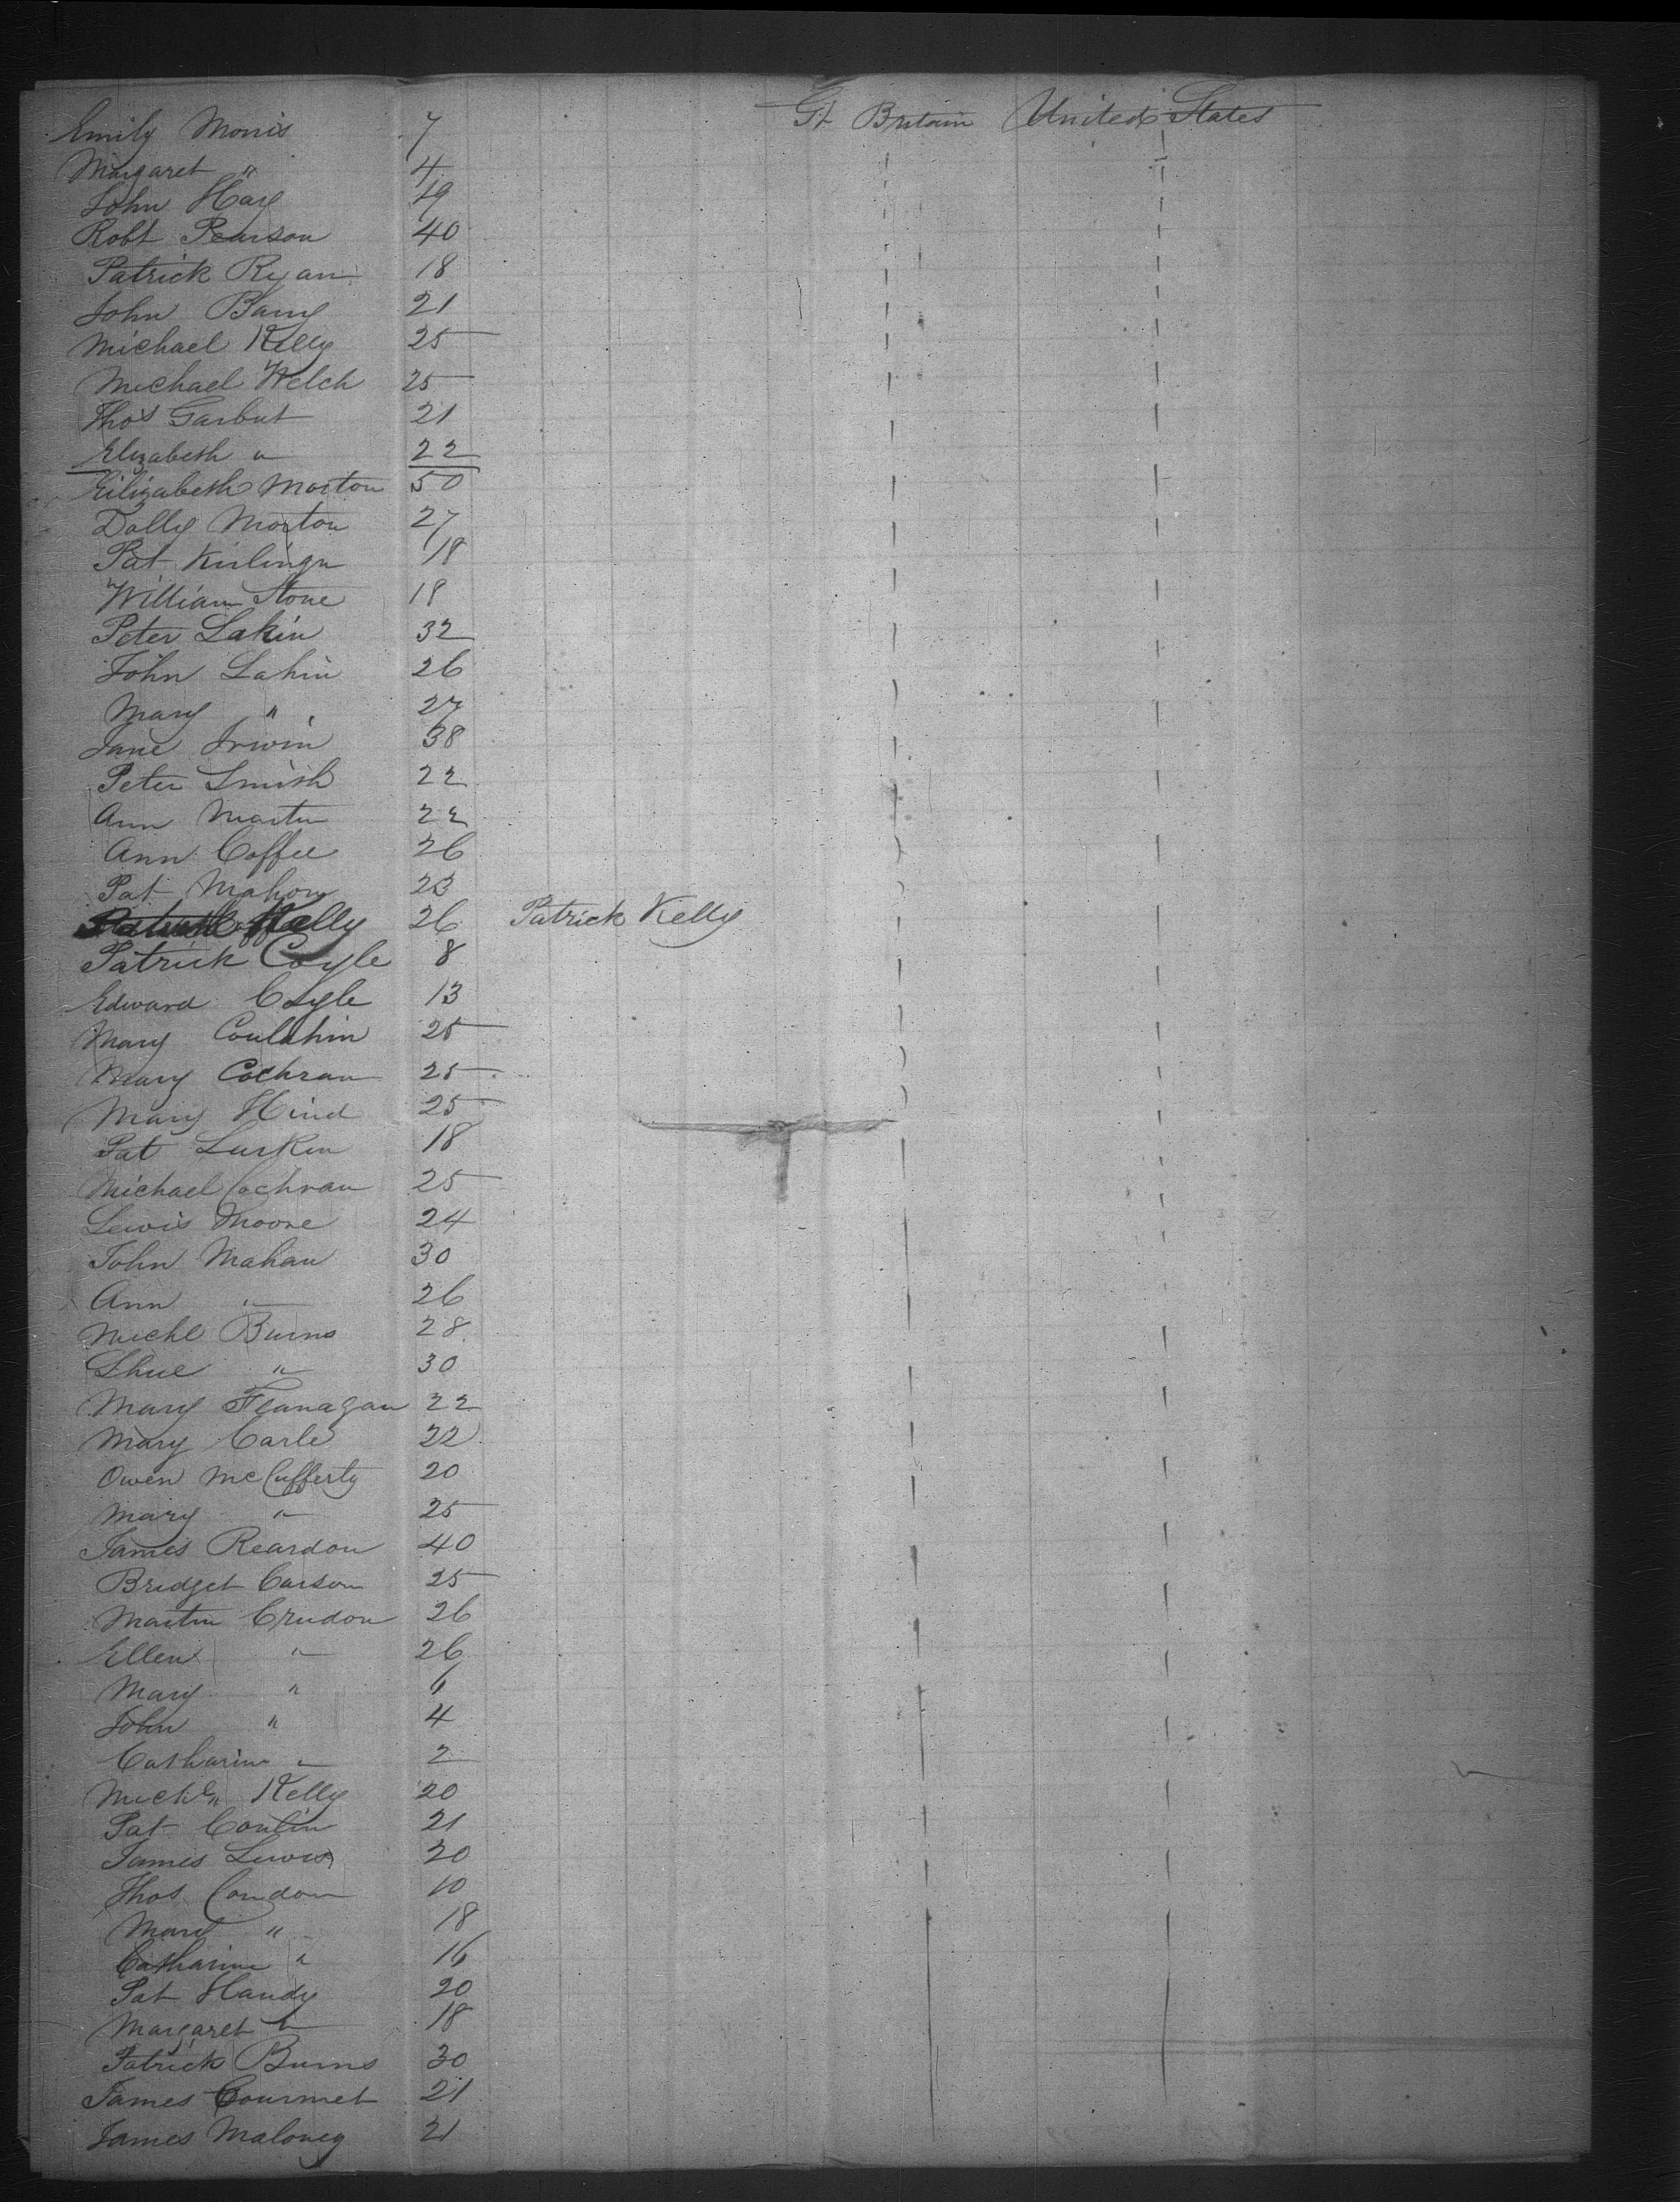 Emily Morris 7 Gt Britain United States
Margaret " 4
John Hay 19
Robt Pearson 40
Patrick Ryan 18
John Barry 21
Michael Kelly 25
Michael Welch 25
Thos Garbut 21
Elizabeth " 22
Elizabeth Morton 50
Dolly Morton 27
Pat 18
William Stone 18
Peter Lakin 32
John Lahin 26
Mary " 27
Jane Irwin 38
Peter Smith 22
Ann Martin 22
Ann Coffee 26
Pat Mahon 23
Patrick Kelly 26 Patrick Kelly
Patrick Coyle 8
Edward Coyle 13
Mary 25
Mary Cochran 25
Mary Hind 25
Pat Lurkin 18
Michael Cochran 25
Lewis Moore 24
John Mahan 30
Ann " 26
Michl Burns 28
" 30
Mary Flanagan 22
Mary Carle 22
Owen McCufferty 20
Mary " 25
James Reardon 40
Bridget Carson 25
Martin Crudon 26
Ellen " 26
Mary " 6
John " 4
Catharine " 2
Michl Kelly 20
Pat Conlin 21
James Lewis 20
Thos Condon 10
Mary " 18
Catharine " 16
Pat Handy 20
Margaret " 18
Patrick Burns 30
James Gourmet 21
James Maloney 21